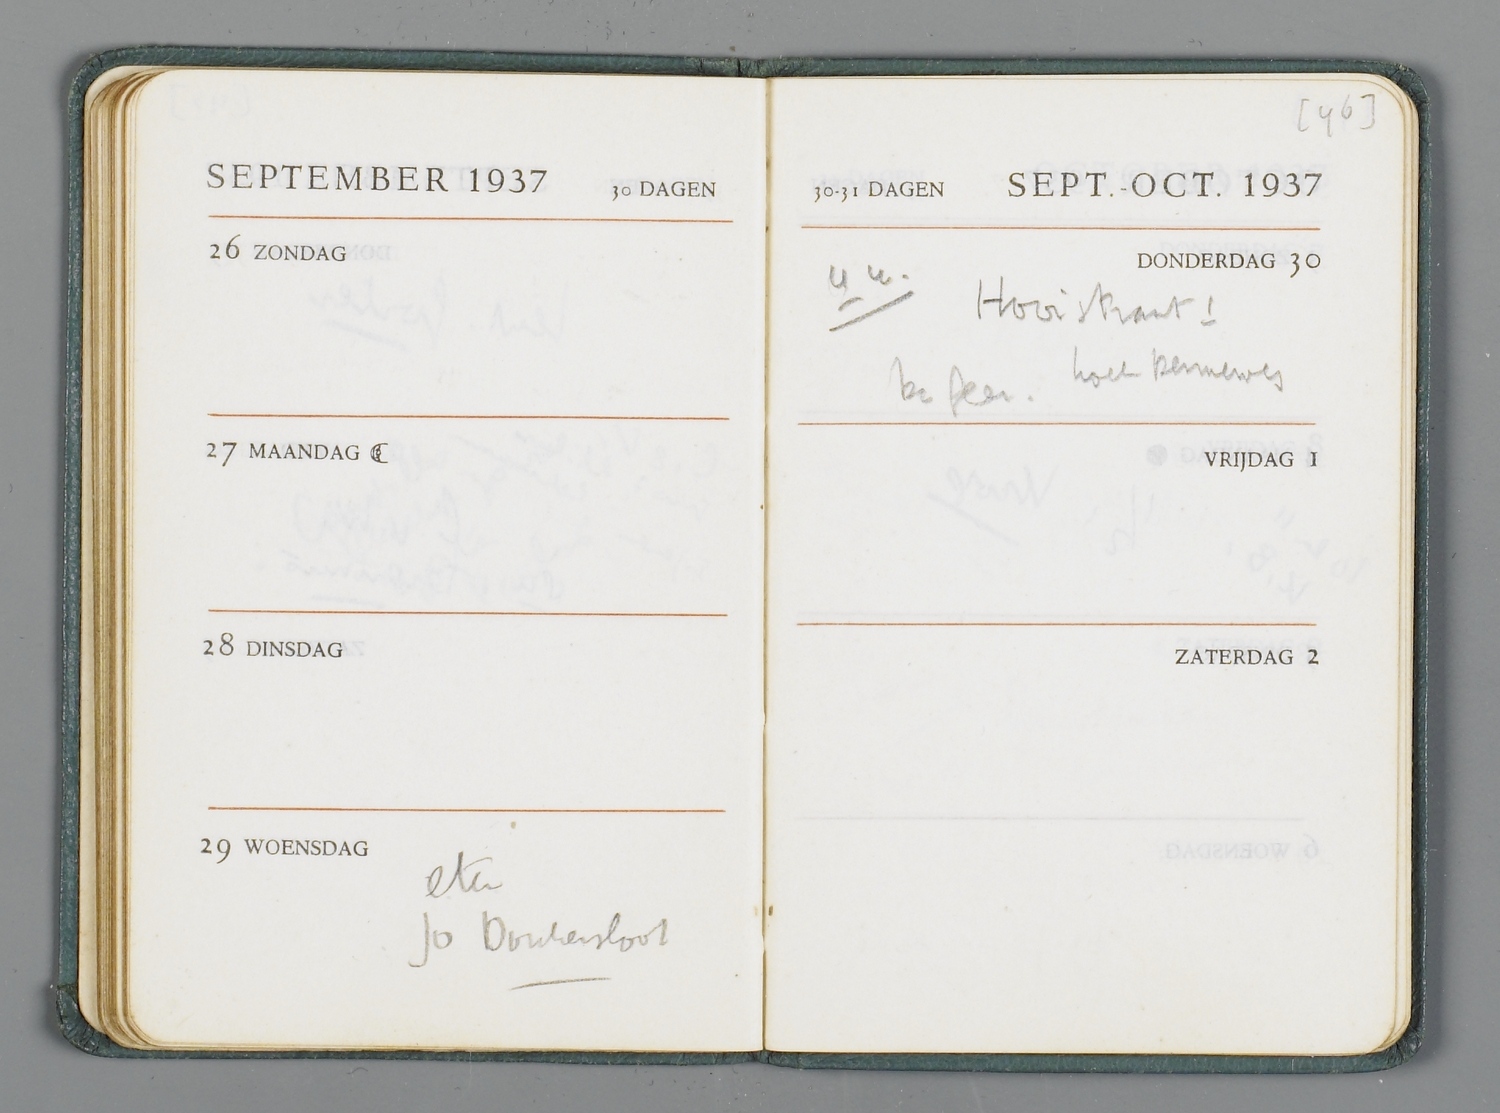 SEPTEMBER 1937 30 DAGEN
26 ZONDAG
27 MAANDAG
28 DINSDAG
29 WOENSDAG
eten
Jo Donkersloot
[46]
30-31 DAGEN SEPT.-OCT. 1937
DONDERDAG 30
VRIJDAG 1
ZATERDAG 2